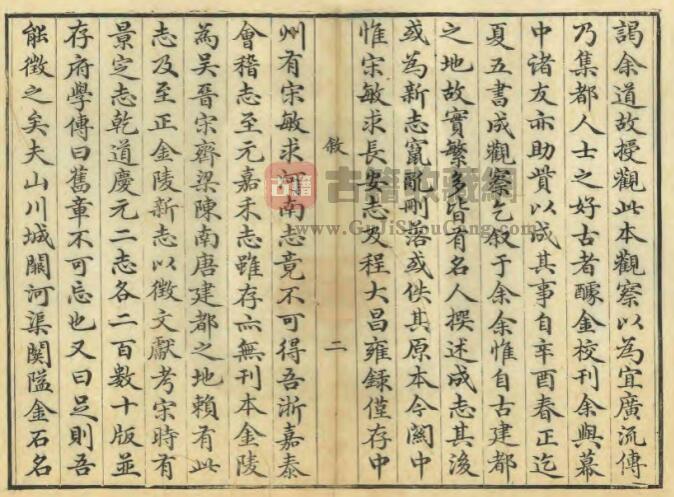 謁余道故授觀此本觀察以為宜廣流傳
乃集都人士之好古者醵金校刊余與幕
中诸友亦助貲以成其事自辛酉春正迄
夏五書成觀察乞叙于余余惟自古建都
之地故實繁多皆有名人撰述成志其後
或為新志竄亂刪落或佚其原本今關中
惟宋敏求長安志及程大昌雍録僅存中
敘
二
州有宋敏求河南志竟不可得吾浙嘉泰
會稽志至元嘉禾志雖存亦無刊本金陵
為吴晉宋齊梁陳南唐建都之地賴有此
志及至正金陵新志以徵文獻考宋時有
景定志乾道慶元二志各二百數十版並
存府學傳曰舊章不可忘也又曰足則吾
能徵之矣夫山川城闕河渠関隘金石名
古籍
古籍收藏網
www.GuJiShouCang.com